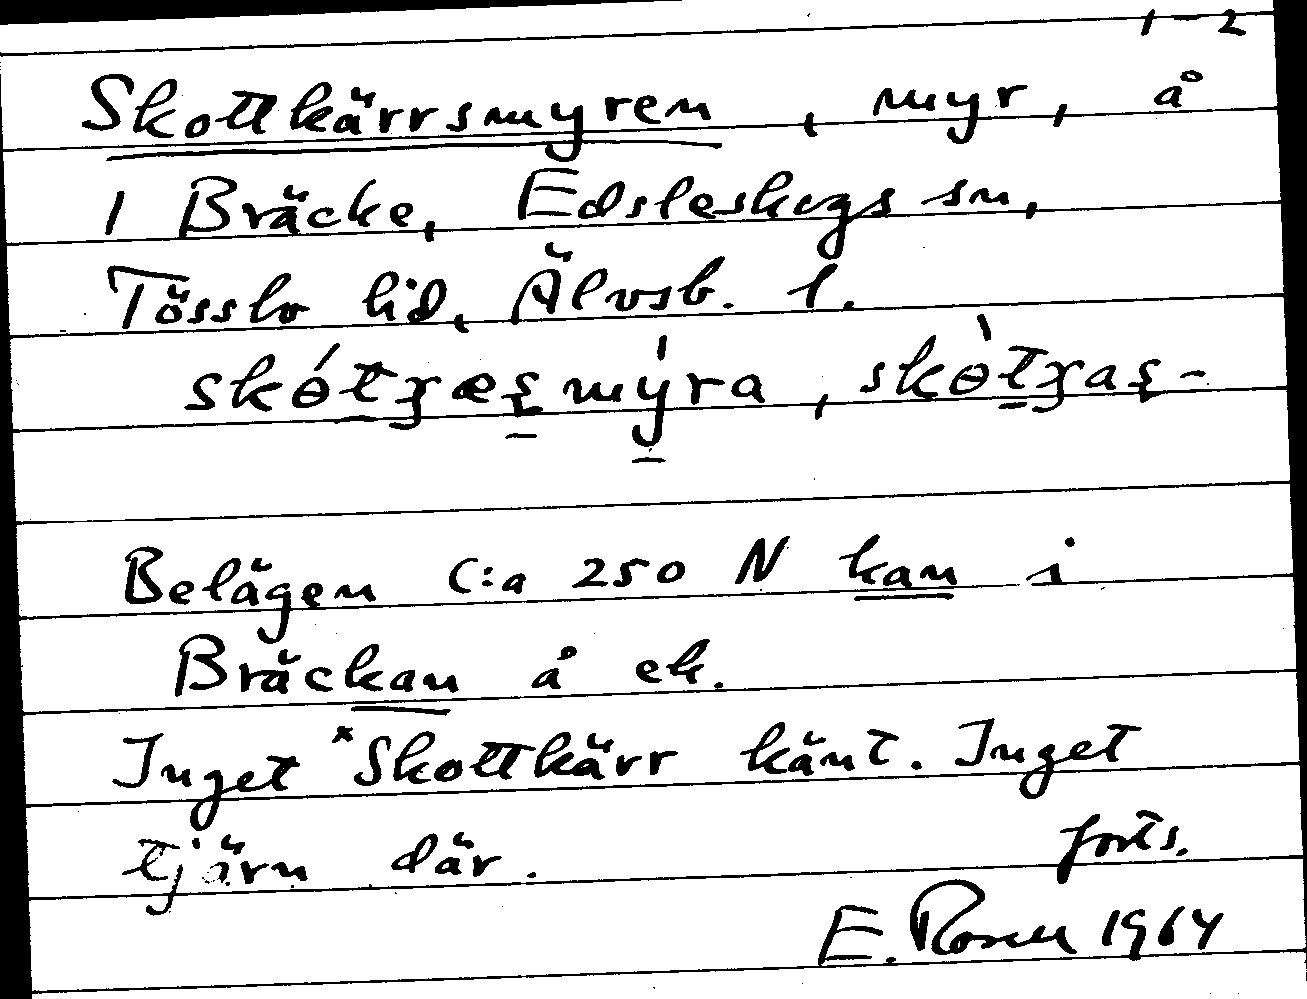 1-2
Skottkärrsmyren, myr, å
1 Bräcke, Edsleskogs sn,
Tösslo hd, Älvsb. l.
Belägen C:a 250 N kan i
Bräckan å ek.
Inget *Skottkärr känt. Inget
tjärn där. forts.
E. Rosell 1964